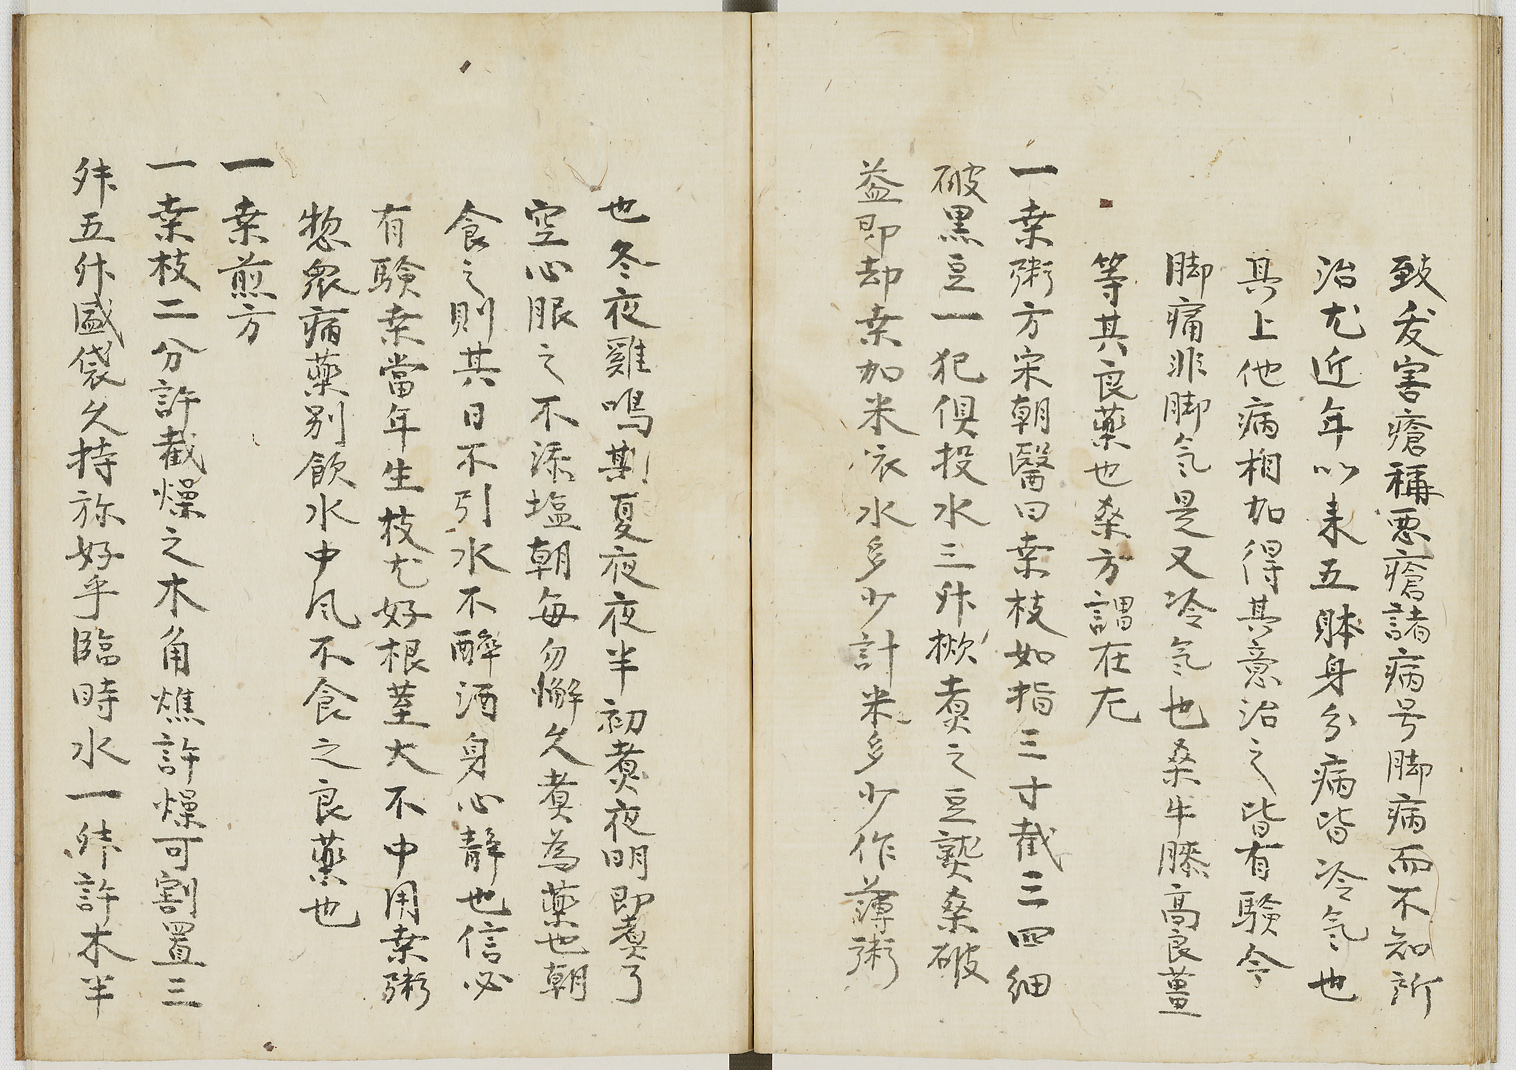 致灸害瘡稱悪瘡諸病号脚病而不知所
治尤近年以来五躰身分病皆冷氣也
其上他病相加得其意治之皆有驗今
脚痛非脚氣是又冷氣也桒牛膝高良薑
等其良藥也桒方謂在左
一桒粥方宋朝醫曰桒枝如指三寸截三四細
破黒豆一犯俱投水三升樕煮之豆熟桒破
益即却桒加米依水多少計米多少作薄粥
也冬夜雞鳴期夏夜夜半初煮夜明即煮了
空心服之不添塩朝每勿懈久煮為藥也朝
食之則其日不引水不醉酒身心静也信必
有驗桒當年生枝尤好根莖大不中用桒粥
惣衆病藥别飲水中風不食之良藥也
一桒煎方
一桒枝二分許截燥之木角燋許燥可割置三
舛五升盛袋久持弥好乎臨時水一舛許木半